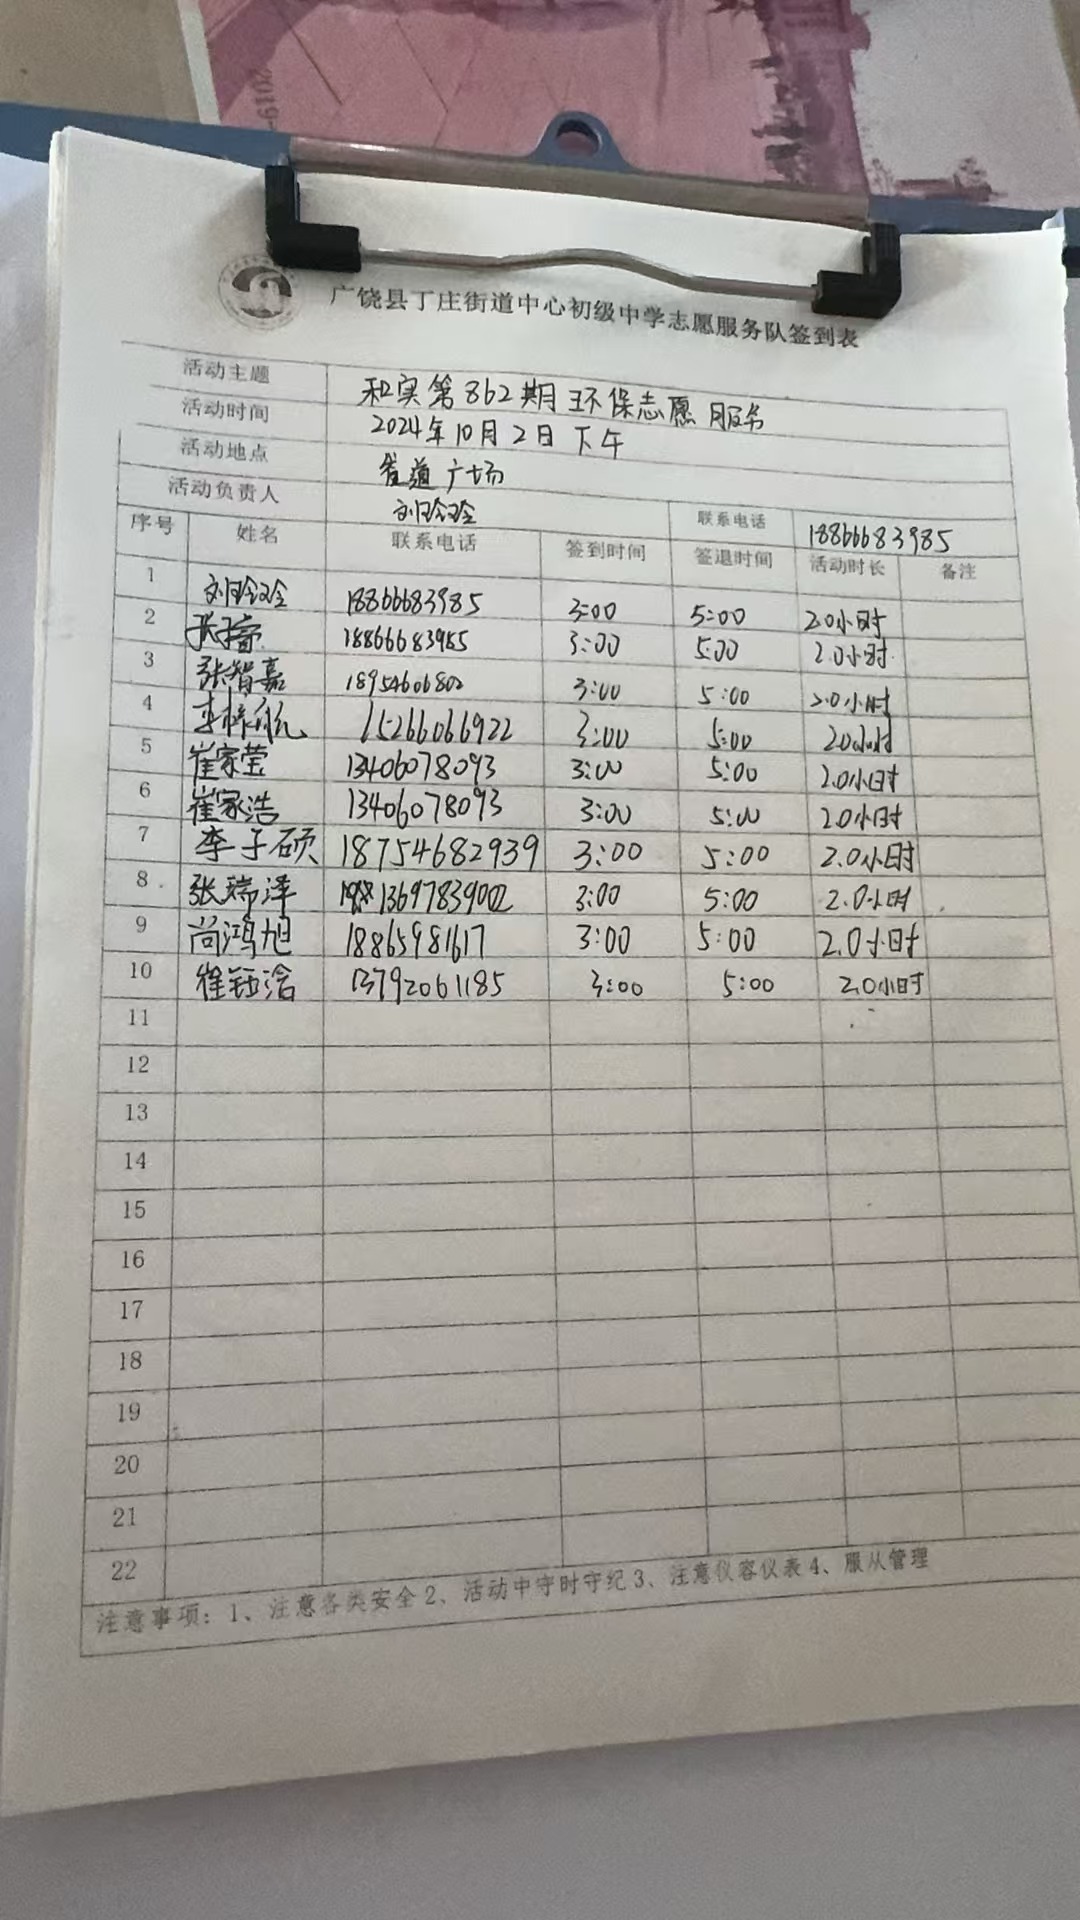 2019-
广饶县丁庄街道中心初级中学志愿服务队签到表
活动主题 和实第862期环保志愿服务
活动时间 2024年10月2日下午
活动地点 街道广场
活动负责人 联系电话 18866683985
序号 姓名 联系电话 签到时间 签退时间 活动时长 备注
1 18866683985 3:00 5:00 2.0小时
2 张子睿 18866683985 3:00 5:00 2.0小时
3 张智嘉 1895460680 3:00 5:00 2.0小时
4 李梓航 15266066922 3:00 5:00 2.0小时
5 崔家莹 13406078093 3:00 5:00 2.0小时
6 崔家浩 13406078093 3:00 5:00 2.0小时
7 李子硕 18754682939 3:00 5:00 2.0小时
8 张瑞泽 13697839002 3:00 5:00 2.0小时
9 尚鸿旭 18865981617 3:00 5:00 2.0小时
10 崔钰浛 13792061185 3:00 5:00 2.0小时
11
12
13
14
15
16
17
18
19
20
21
22
注意事项：1、注意各类安全2、活动中守时守纪3、注意仪容仪表4、服从管理